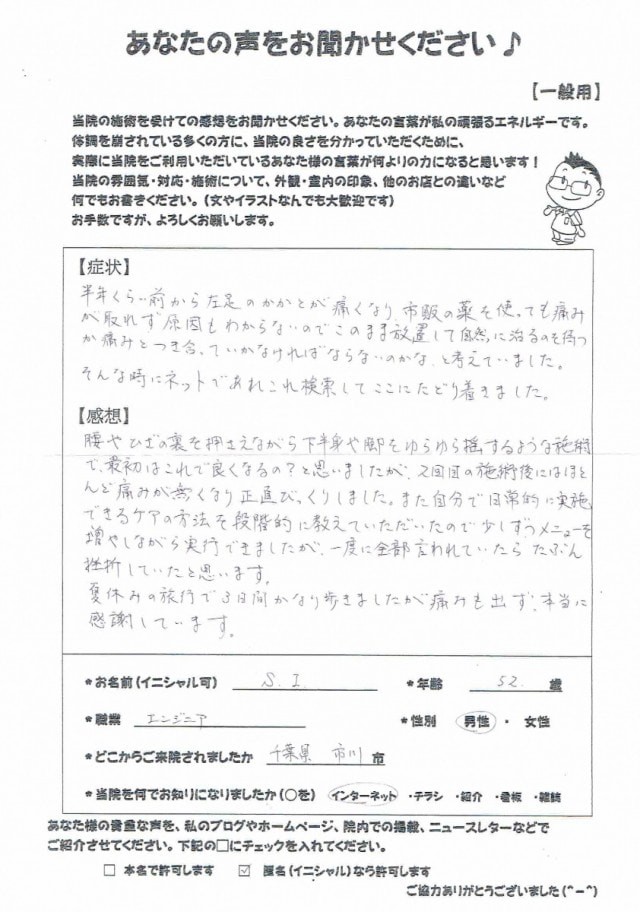 あなたの声をお聞かせください♪
【一般用】
当院の施術を受けての感想をお聞かせください。あなたの言葉が私の頑張るエネルギーです。
体調を崩されている多くの方に、当院の良さを分かっていただくために、
実際に当院をご利用いただいているあなた様の言葉が何よりの力になると思います！
当院の雰囲気・対応・施術について、外観・室内の印象、他のお店との違いなど
何でもお書きください。（文やイラストなんでも大歓迎です）
お手数ですが、よろしくお願いします。
【症状】
半年くらい前から左足のかかとが痛くなり、市販の薬を使っても痛み
が取れず原因もわからないのでこのまま放置して自然に治るのを待つ
か痛みとつき合っていかなければならないのかな、と考えていました。
そんな時にネットであれこれ検索してここにたどり着きました。
【感想】
腰やひざの裏を押さえながら下半身や脚をゆらゆら揺するような施術
で、最初はこれで良くなるの？と思いましたが、2回目の施術後にはほと
んど痛みが無くなり正直びっくりしました。また自分で日常的に実施
できるケアの方法を段階的に教えていただいたので少しずつメニューを
増やしながら実行できましたが、一度に全部言われていたら たぶん
挫折していたと思います。
夏休みの旅行で3日間かなり歩きましたが痛みも出ず、本当に
感謝しています。
*お名前（イニシャル可） S. I. *年齢 52 歳
*職業 エンジニア *性別 男性 ・ 女性
*どこからご来院されましたか 千葉県 市川 市
*当院を何でお知りになりましたか（○を） インターネット ・チラシ ・紹介 ・看板 ・雑誌
あなた様の貴重な声を、私のブログやホームページ、院内での掲載、ニュースレターなどで
ご紹介させてください。下記の□にチェックを入れてください。
□ 本名で許可します ☑ 匿名（イニシャル）なら許可します
ご協力ありがとうございました（^－^）